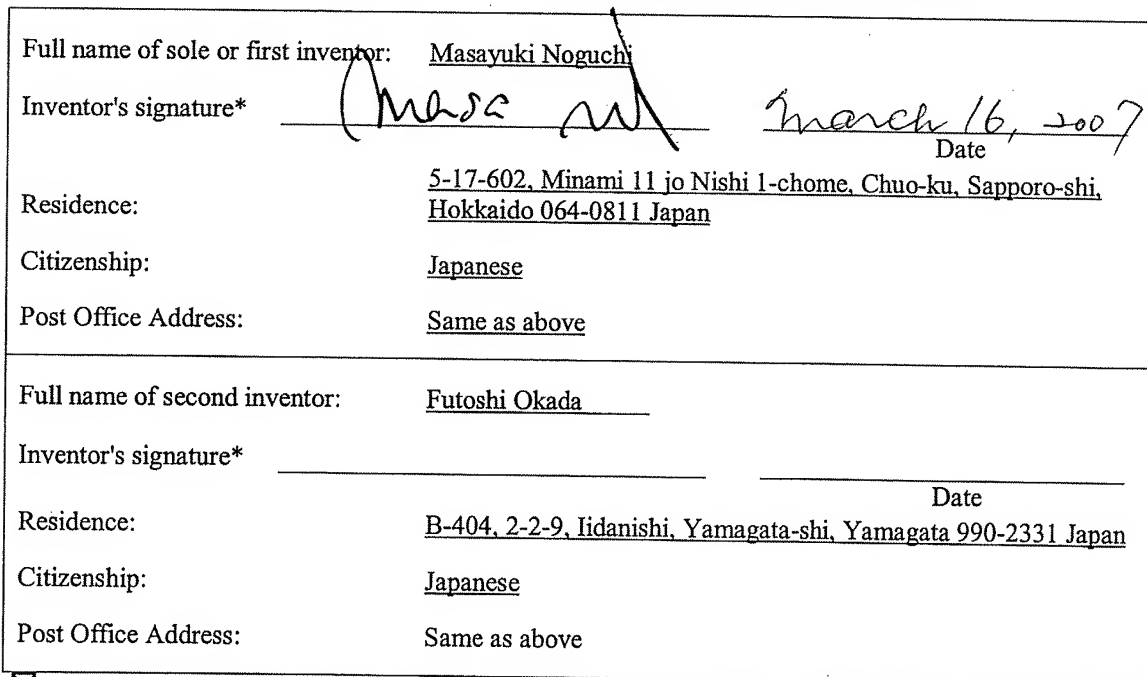 Full name of sole or first inventor: Masayuki Noguchi
Inventor's signature* Masa
March 16, 2007
Date
Residence: 5-17-602, Minami 11 jo Nishi 1-chome, Chuo-ku, Sapporo-shi,
Hokkaido 064-0811 Japan
Citizenship: Japanese
Post Office Address: Same as above
Full name of second inventor: Futoshi Okada
Inventor's signature*
Date
Residence: B-404, 2-2-9, Iidanishi, Yamagata-shi, Yamagata 990-2331 Japan
Citizenship: Japanese
Post Office Address: Same as above